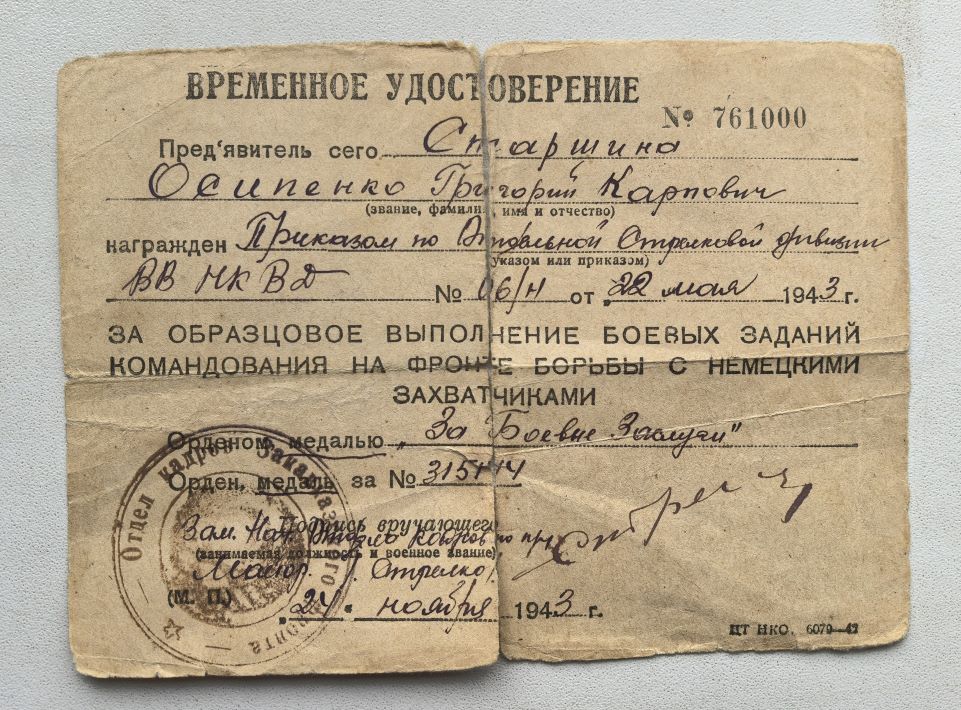 ВРЕМЕННОЕ УДОСТОВЕРЕНИЕ
№ 761000
Пред'явитель сего Старшина
Осипенко Григорий Карпович
(звание, фамилия, имя и отчество)
награжден Приказом по Отдельной Стрелковой дивизии
указом или приказом)
ВВ НКВД № 06/н от „22 мая 1943 г.
ЗА ОБРАЗЦОВОЕ ВЫПОЛНЕНИЕ БОЕВЫХ ЗАДАНИЙ
КОМАНДОВАНИЯ НА ФРОНТЕ БОРЬБЫ С НЕМЕЦКИМИ
ЗАХВАТЧИКАМИ
Орденом, медалью „За Боевые Заслуги"
Орден, медаль за №
Подпись вручающего
Зам. Нач. Отдела кадров по
(занимаемая должность и военное звание)
Майор /Стрелко/
(М. П.) „24" ноября 1943 г.
Отдел кадров Закавказского фронта
ЦТ НКО. 6079—42